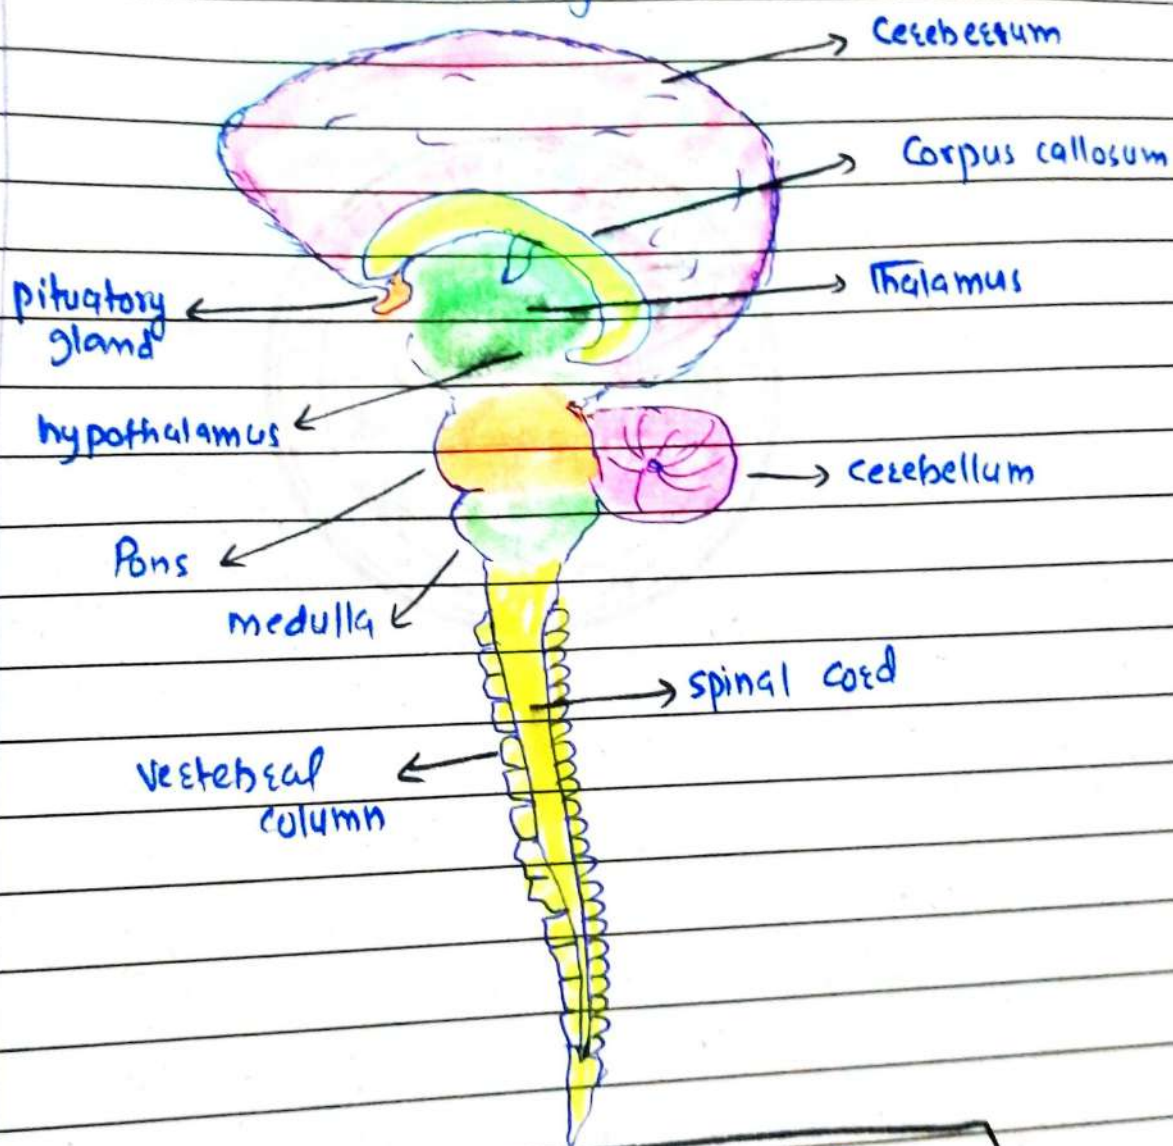 Cerebrum
Corpus callosum
Thalamus
pituatory
gland
hypothalamus
cerebellum
Pons
medulla
spinal cord
Vertebral
column